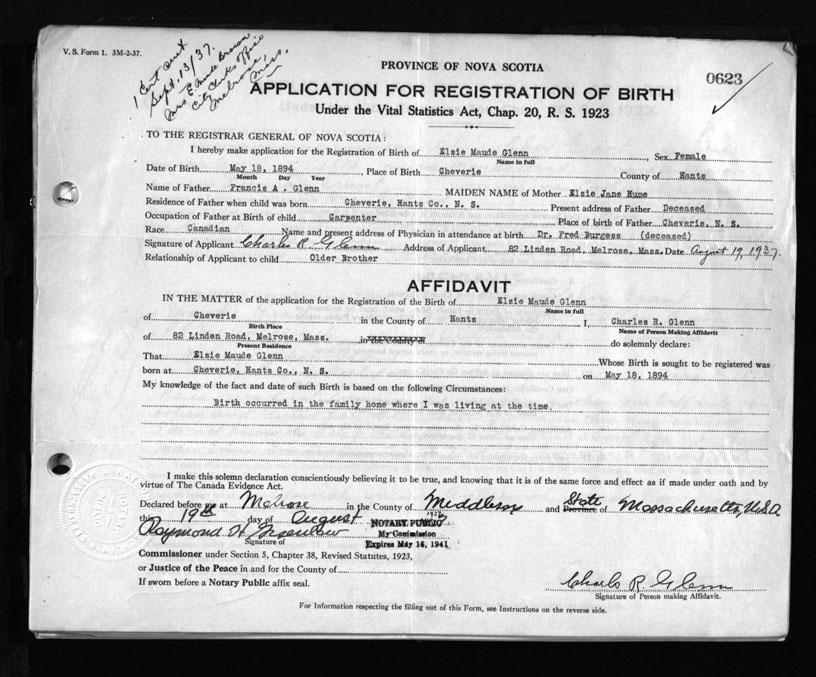 V. S. Form 1. 3M-2-37.
1 Cert sent
Sept. 13/37.
Mrs E Maude Brown
City Clerks Office
Melrose,
Mass.
PROVINCE OF NOVA SCOTIA
0623
APPLICATION FOR REGISTRATION OF BIRTH
Under the Vital Statistics Act, Chap. 20, R. S. 1923
TO THE REGISTRAR GENERAL OF NOVA SCOTIA:
I hereby make application for the Registration of Birth of Elsie Maude Glenn Sex Female
Name in full
Date of Birth May 18, 1894, Place of Birth Cheverie County of Hants
Month Day Year
Name of Father Francis A. Glenn MAIDEN NAME of Mother Elsie Jane Hume
Residence of Father when child was born Cheverie, Hants Co., N. S. Present address of Father Deceased
Occupation of Father at Birth of child Carpenter Place of birth of Father Cheverie, N. S.
Race Canadian Name and present address of Physician in attendance at birth Dr. Fred Burgess (deceased)
Signature of Applicant Charles R Glenn Address of Applicant 82 Linden Road, Melrose, Mass. Date August 19, 1937.
Relationship of Applicant to child Older Brother
AFFIDAVIT
IN THE MATTER of the application for the Registration of the Birth of Elsie Maude Glenn
Name in full
of Cheverie in the County of Hants I, Charles R. Glenn
Birth Place Name of Person Making Affidavit
of 82 Linden Road, Melrose, Mass. in the County of do solemnly declare:
Present Residence
That Elsie Maude Glenn Whose Birth is sought to be registered was
born at Cheverie, Hants Co., N. S. on May 18, 1894
My knowledge of the fact and date of such Birth is based on the following Circumstances:
Birth occurred in the family home where I was living at the time.
I make this solemn declaration conscientiously believing it to be true, and knowing that it is of the same force and effect as if made under oath and by
virtue of The Canada Evidence Act.
Declared before me at Melrose in the County of Middlesex and State Province of Massachusetts, U.S.A.
this 19th day of August 1937
NOTARY PUBLIC
Raymond My Commission
Signature of Expires May 16, 1941
Commissioner under Section 5, Chapter 38, Revised Statutes, 1923,
or Justice of the Peace in and for the County of
If sworn before a Notary Public affix seal.
Charles R Glenn
Signature of Person making Affidavit.
For Information respecting the filling out of this Form, see Instructions on the reverse side.